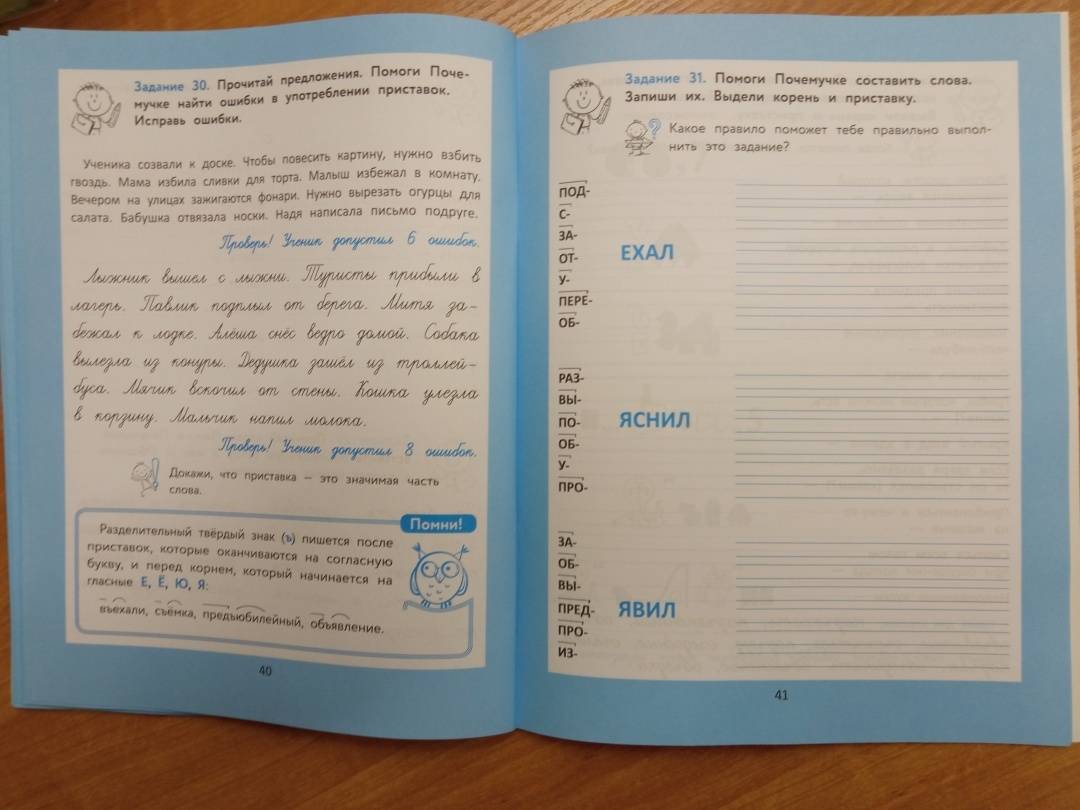 Задание 30. Прочитай предложения. Помоги Поче-
мучке найти ошибки в употреблении приставок.
Исправь ошибки.
Ученика созвали к доске. Чтобы повесить картину, нужно взбить
гвоздь. Мама избила сливки для торта. Малыш избежал в комнату.
Вечером на улицах зажигаются фонари. Нужно вырезать огурцы для
салата. Бабушка отвязала носки. Надя написала письмо подруге.
Проверь! Ученик допустил 6 ошибок.
Лыжник вышел с лыжни. Туристы прибыли в
лагерь. Павлик подплыл от берега. Митя за-
бежал к лодке. Алёша снёс ведро домой. Собака
вылезла из конуры. Дедушка зашёл из троллей-
буса. Мячик вскочил от стены. Кошка улезла
в корзину. Мальчик напил молока.
Проверь! Ученик допустил 8 ошибок.
Докажи, что приставка – это значимая часть
слова.
Помни!
Разделительный твёрдый знак (ъ) пишется после
приставок, которые оканчиваются на согласную
букву, и перед корнем, который начинается на
гласные Е, Ё, Ю, Я:
въехали, съёмка, предъюбилейный, объявление.
40
Задание 31. Помоги Почемучке составить слова.
Запиши их. Выдели корень и приставку.
Какое правило поможет тебе правильно выпол-
нить это задание?
ПОД-
С-
ЗА-
ОТ-
У-
ПЕРЕ-
ОБ-
ЕХАЛ
РАЗ-
ВЫ-
ПО-
ОБ-
У-
ПРО-
ЯСНИЛ
ЗА-
ОБ-
ВЫ-
ПРЕД-
ПРО-
ИЗ-
ЯВИЛ
41